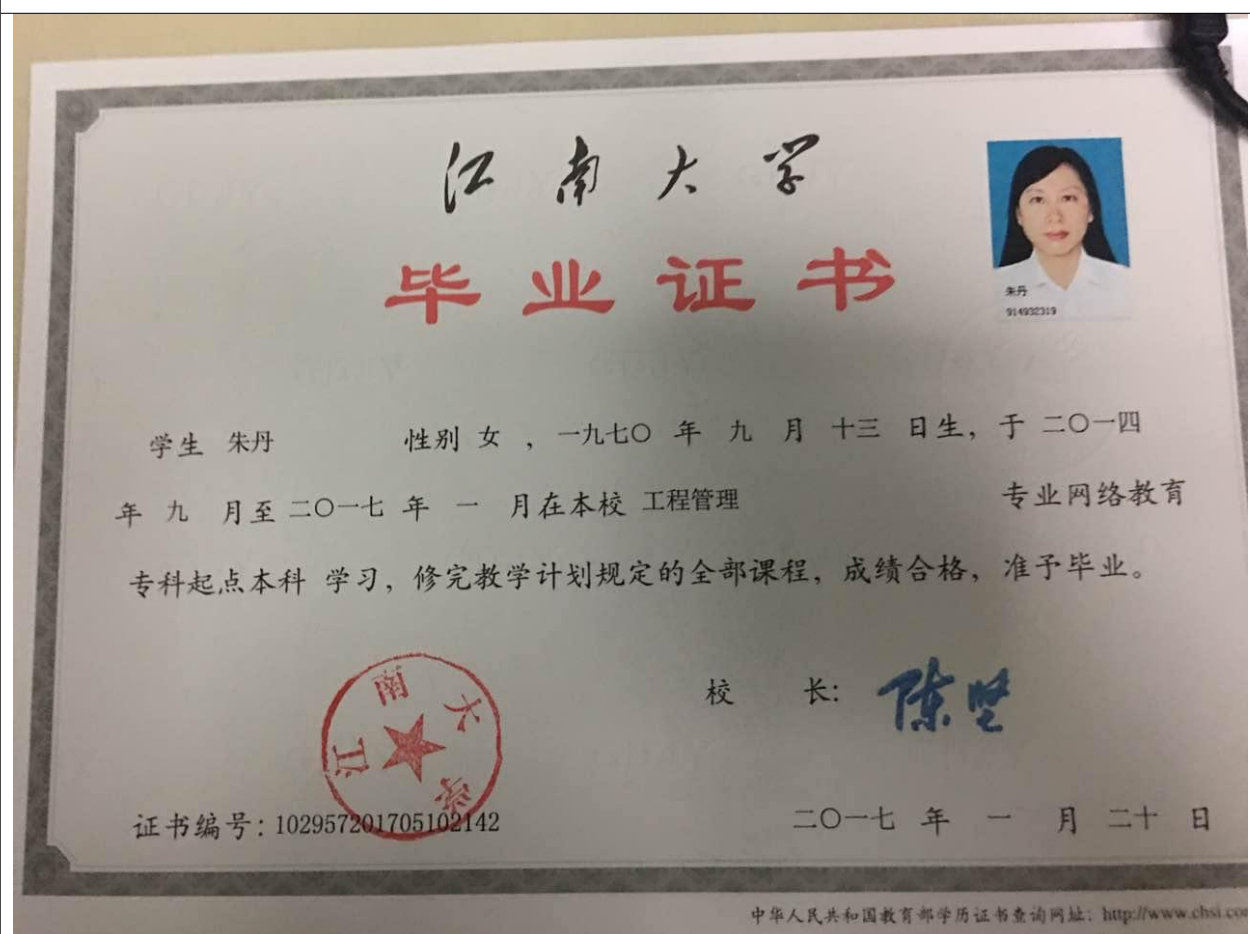 江南大学
毕业证书
朱丹
914932319
学生 朱丹 性别 女 ，一九七〇 年 九 月 十三 日生，于 二〇一四
年 九 月至 二〇一七 年 一 月在本校 工程管理 专业网络教育
专科起点本科 学习，修完教学计划规定的全部课程，成绩合格，准予毕业。
校 长：陈坚
江南大学
证书编号：102957201705102142
二〇一七 年 一 月 二十 日
中华人民共和国教育部学历证书查询网址：http://www.chsi.com